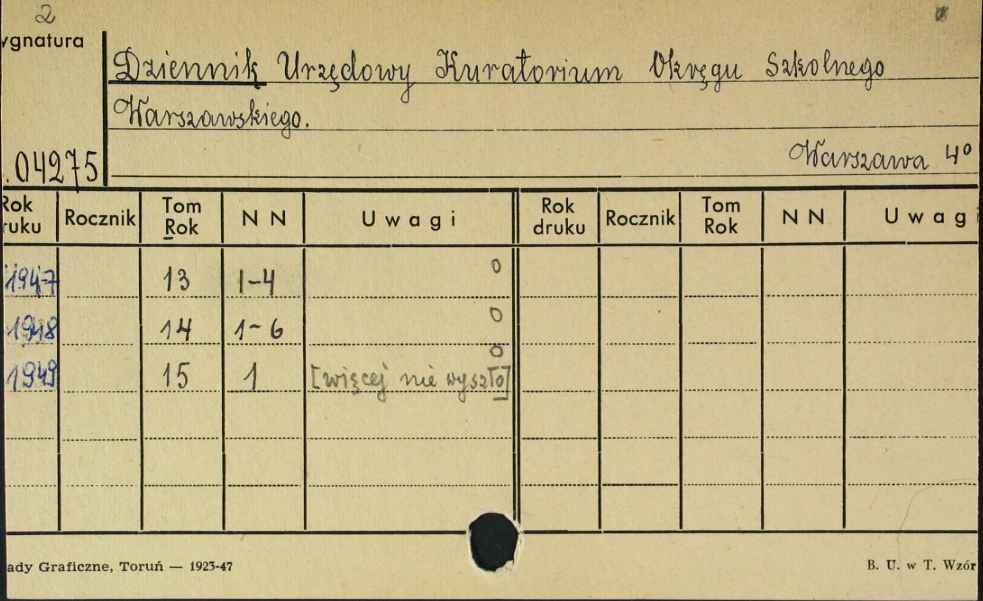 2
ygnatura
Dziennik Urzędowy Kuratorium Okręgu Szkolnego
Warszawskiego.
.04275
Warszawa 4º
Rok druku Rocznik Tom Rok N N Uwagi Rok druku Rocznik Tom Rok N N Uwagi
1947 13 1-4 o
1948 14 1-6 o
1949 15 1 [więcej nie wyszło] o
ady Graficzne, Toruń — 1923-47 B. U. w T. Wzór